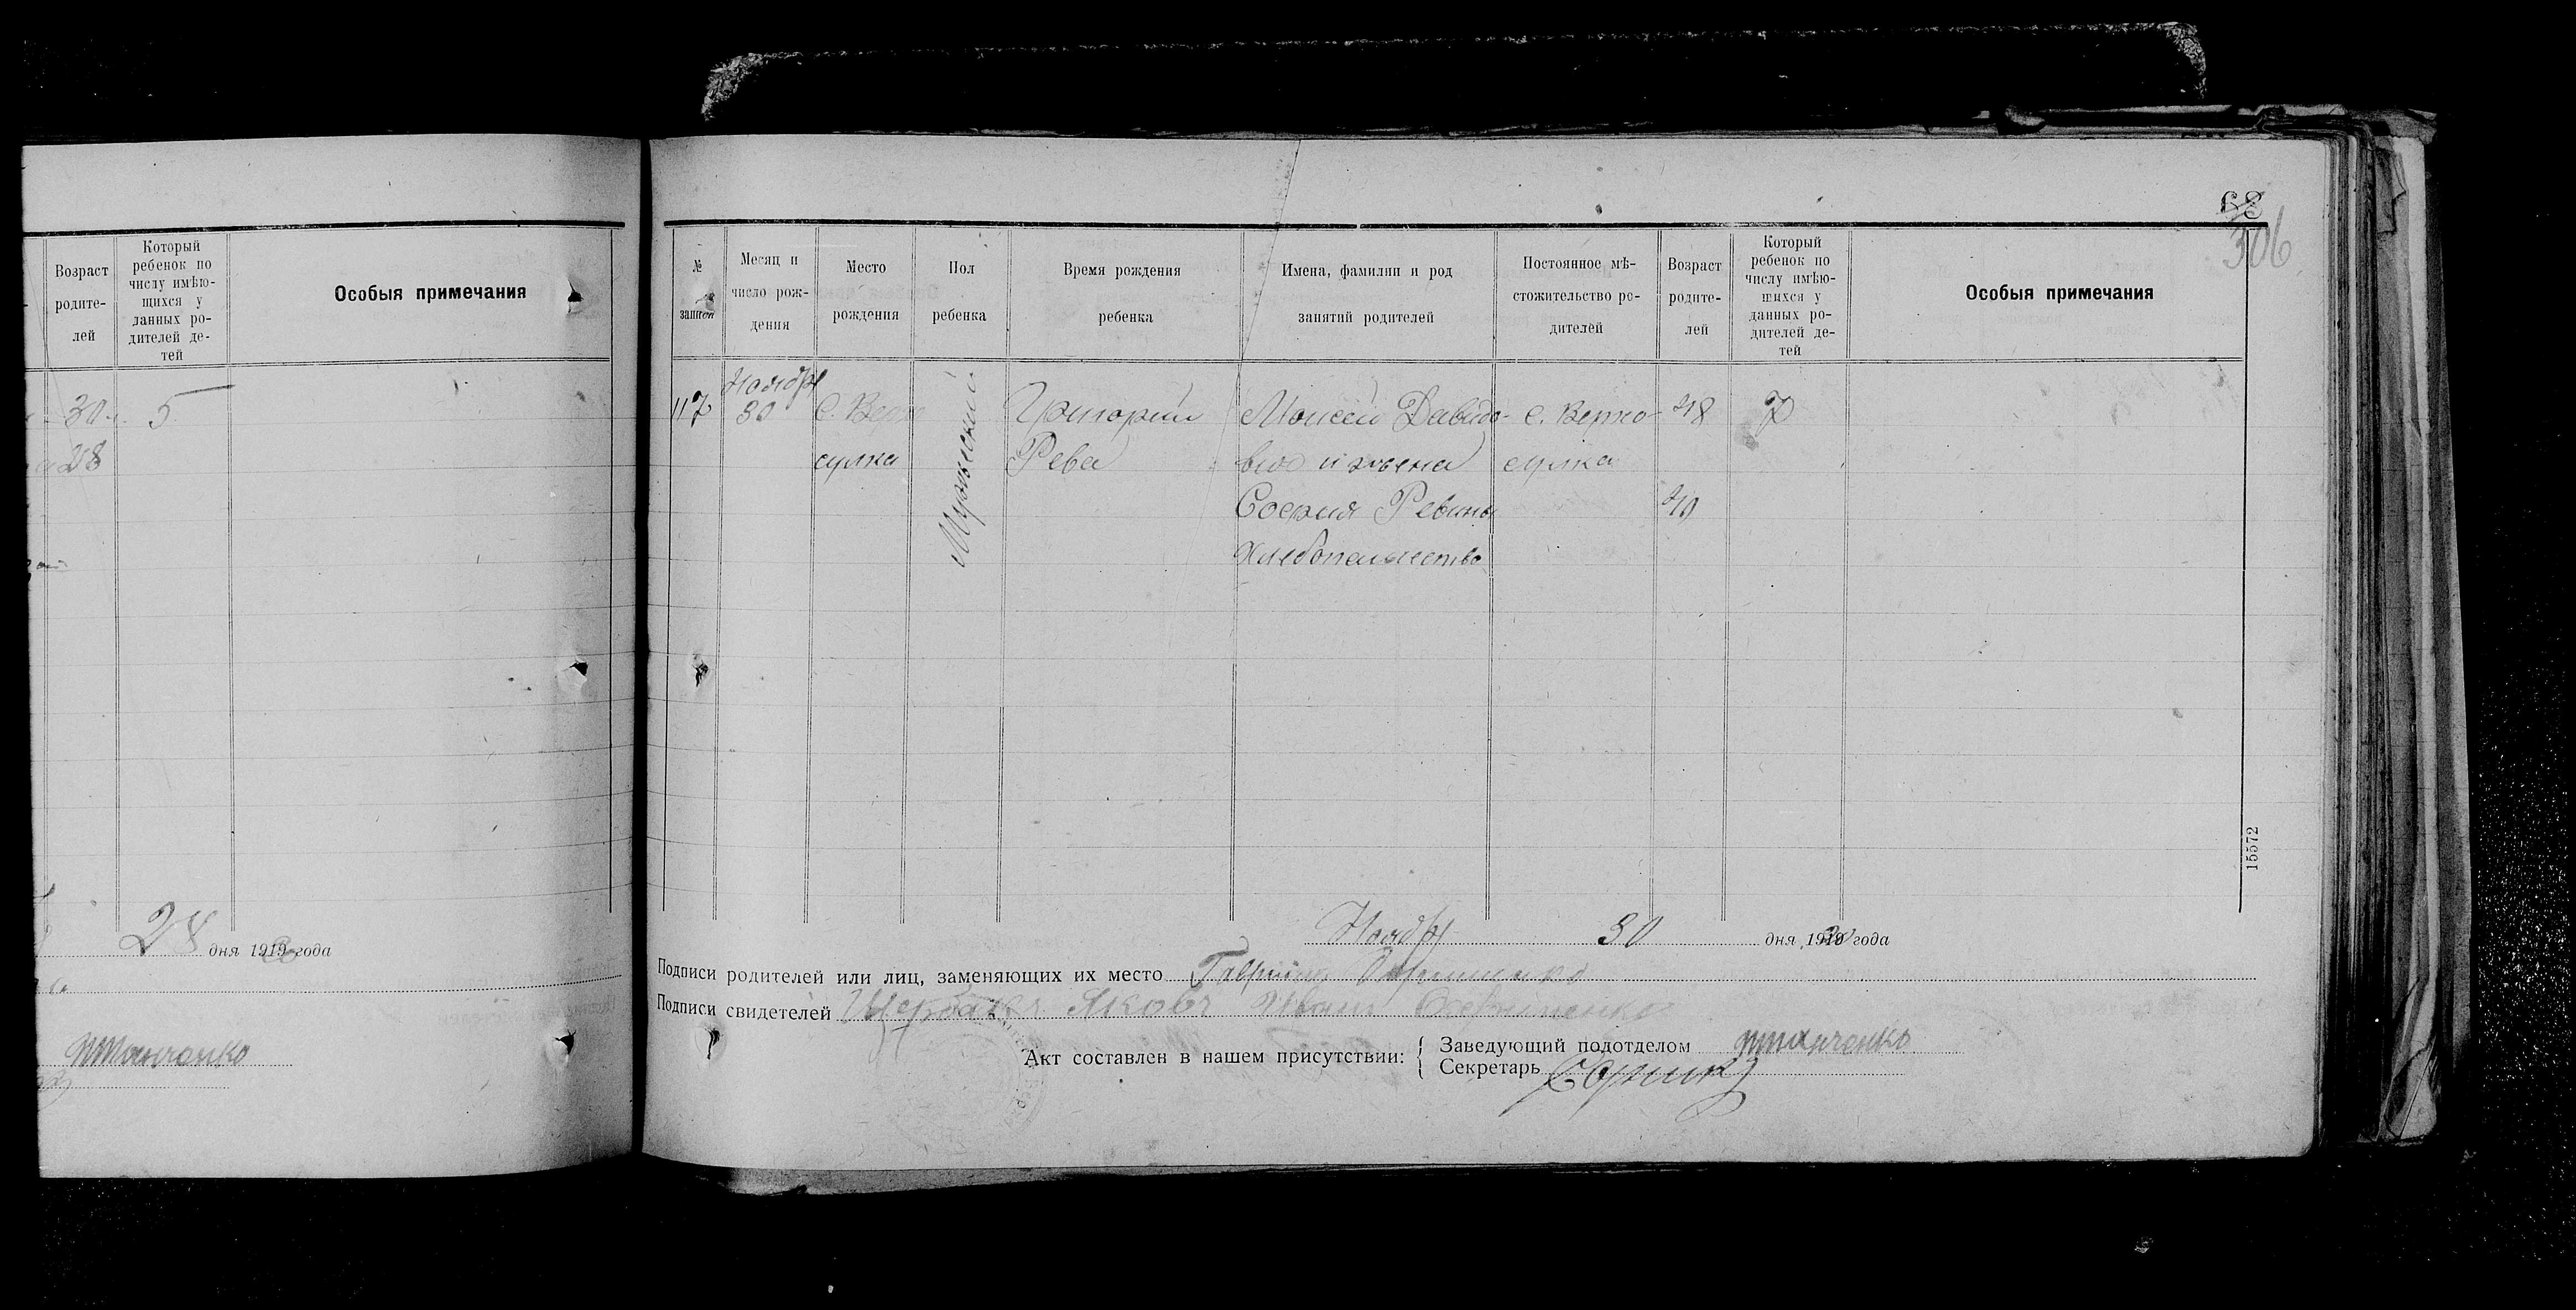 Возраст родите- лей
Который ребенок по числу имѣю- щихся у данных ро- дителей де- тей
Особыя примечания
30 5
28
28 дня 1919 года
Штанченко
68
306
№ записи
Месяц и число рож- дения
Место рождения
Пол ребенка
Время рождения ребенка
Имена, фамилии и род занятий родителей
Постоянное мѣ- стожительство ро- дителей
Возраст родите- лей
Который ребенок по числу имѣю- щихся у данных ро- дителей де- тей
Особыя примечания
Ноября
117 30 С. Верхо Мужеский Григорий Моисей Давидо- с. Верхо- 48 7
сулка Рева вич и жена сулка
София Ревины 40
хлебопашество
15572
Ноября 30 дня 1920 года
Подписи родителей или лиц, заменяющих их место
Подписи свидетелей Щербак Яковъ Иван
Акт составлен в нашем присутствии: Заведующий подотделом Штанченко
Секретарь